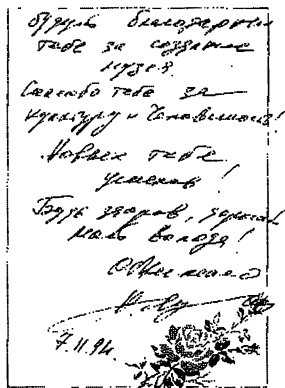 будут благодарны
тебе за создание
музея.
Спасибо тебе за
культуру и Человечность!
Новых тебе
успехов!
Будь здоров,
Володя!
Обнимаю
7.11.94.